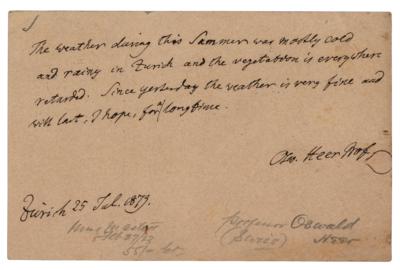 The weather during this Summer was mostly cold
and rainy in Zurich and the vegetation is everywhere
retarded. Since yesterday the weather is very fine and
will last, I hope, for a longtime.
Osw. Heer Prof.
Zürich 25 Jul. 1879.
Professor Oswald
(Swiss) Heer